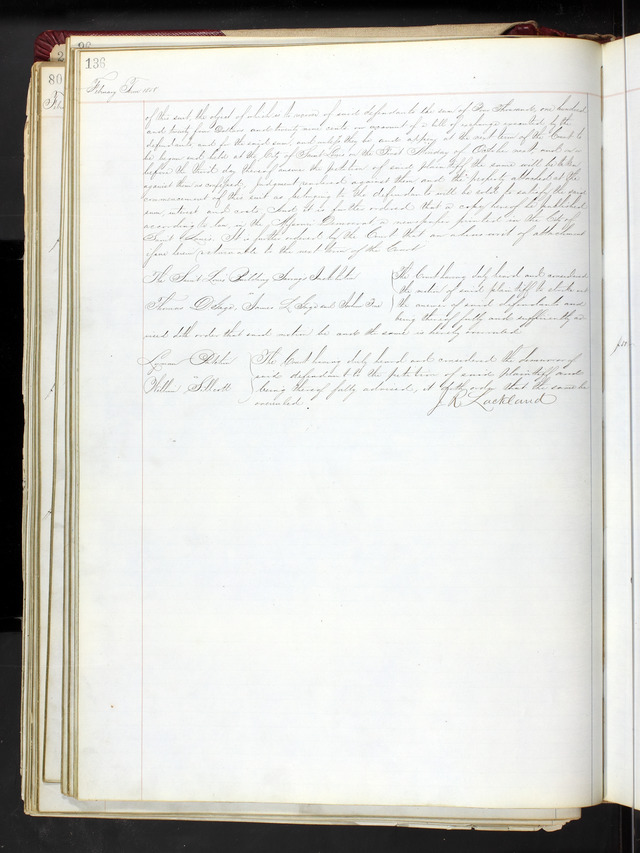 136
80
February Term 1858
of this suit the object of which is to recover of said defendants the sum of Five Thousand, one hundred
and twenty four Dollars and twenty nine cents on account of a bill of exchange executed by the
defendants and for the said sum, and unless they be and appear at the next term of this Court to
be begun and held at the City of Saint Louis on the First Monday of October next and on or
before the third day thereof answer the petition of said plaintiff the same will be taken
against them as confessed, judgment rendered against them and the property attached at the
commencement of this suit as belonging to the defendants will be sold to satisfy the said
sum, interest and costs, And it is further ordered that a copy hereof be published
according to law in the Missouri Democrat a newspaper printed in the City of
Saint Louis. It is further ordered by the Court that an writ of attachment
returnable to the next term of the Court
The Saint Louis Building Savings Association
The Court having duly heard and considered
the motion of said plaintiff to strike out
Thomas James L and John
the answer of said defendants and
being thereof fully and sufficiently ad-
vised doth order that said motion be and the same is hereby overruled
Lyman
The Court having duly heard and considered the demurrer of
said defendant to the petition of said plaintiff and
being thereof fully advised, it doth order that the same be
overruled
J R Lackland